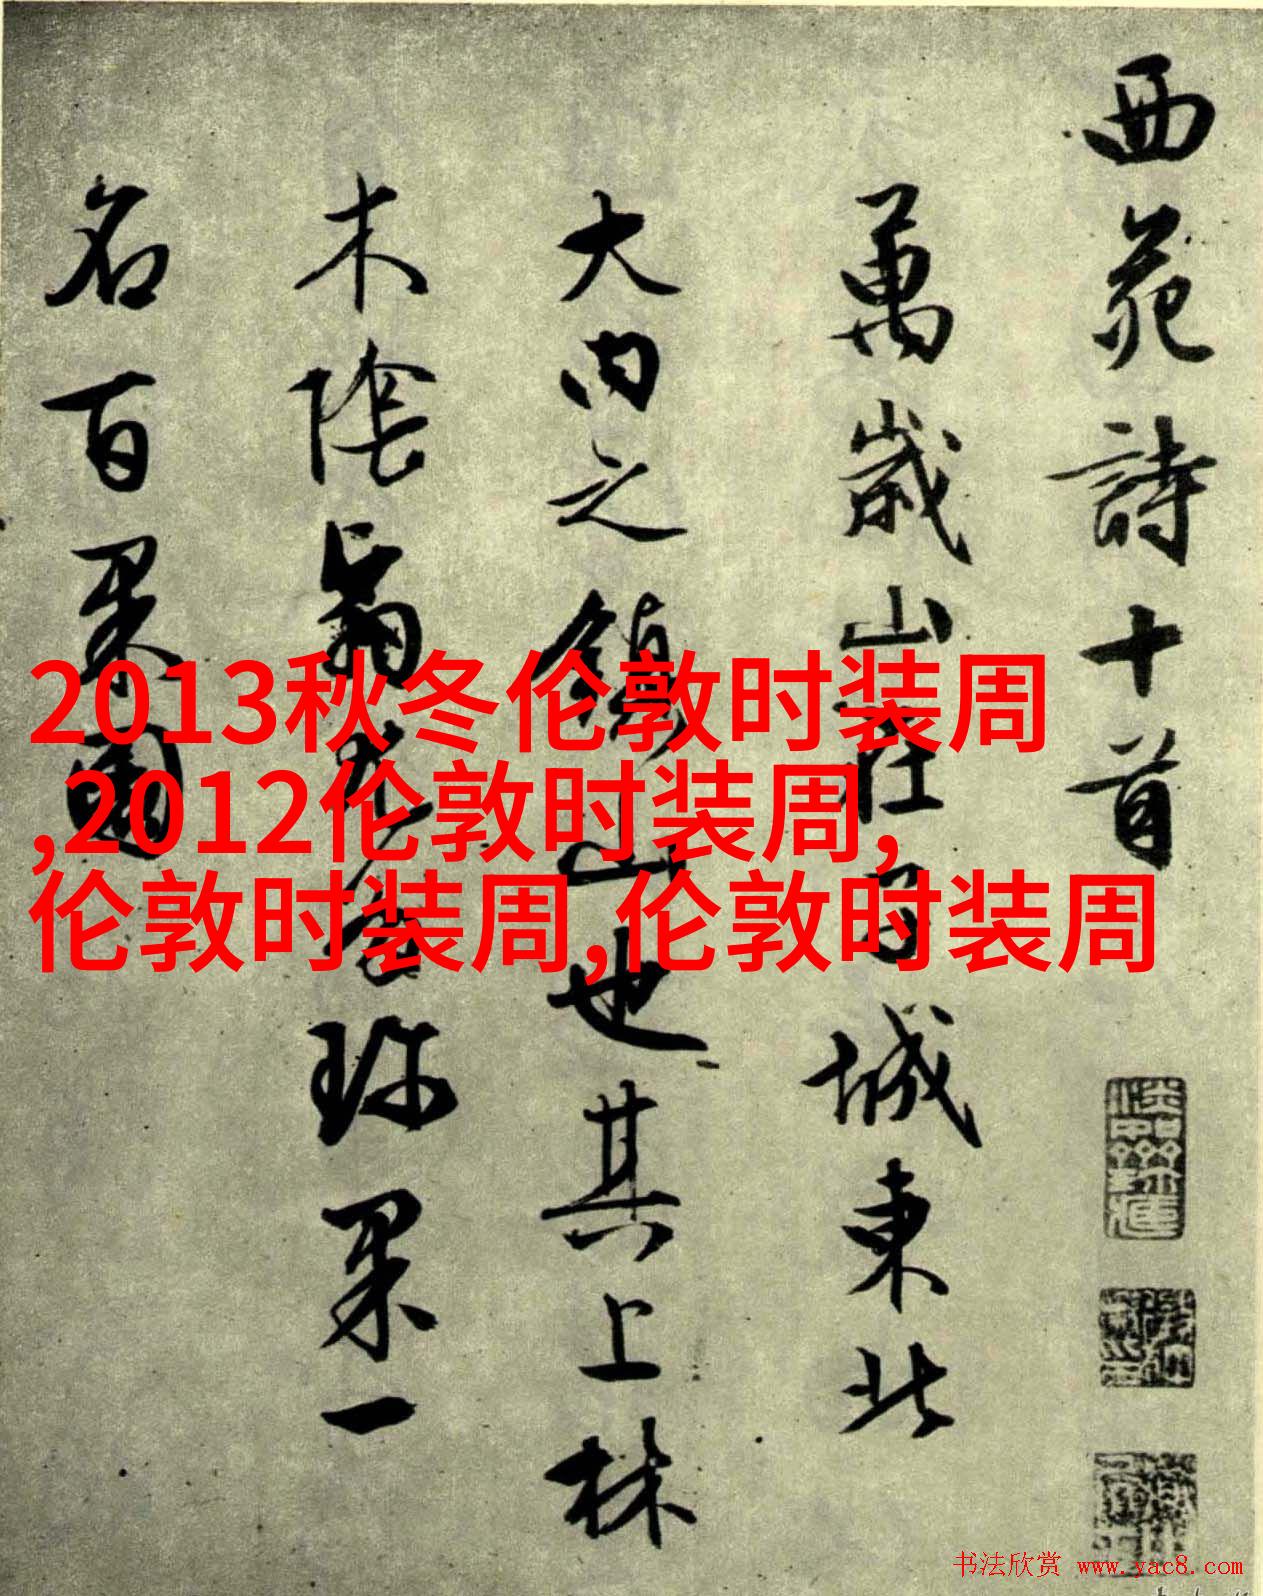 西苑詩十首
萬歲山在子城東北
大内之鎮山也其上林
木陰翳尤多珍果一
名百果園
2013秋冬伦敦时装周
,2012伦敦时装周,
伦敦时装周,伦敦时装周
书法欣赏 www.yac8.com